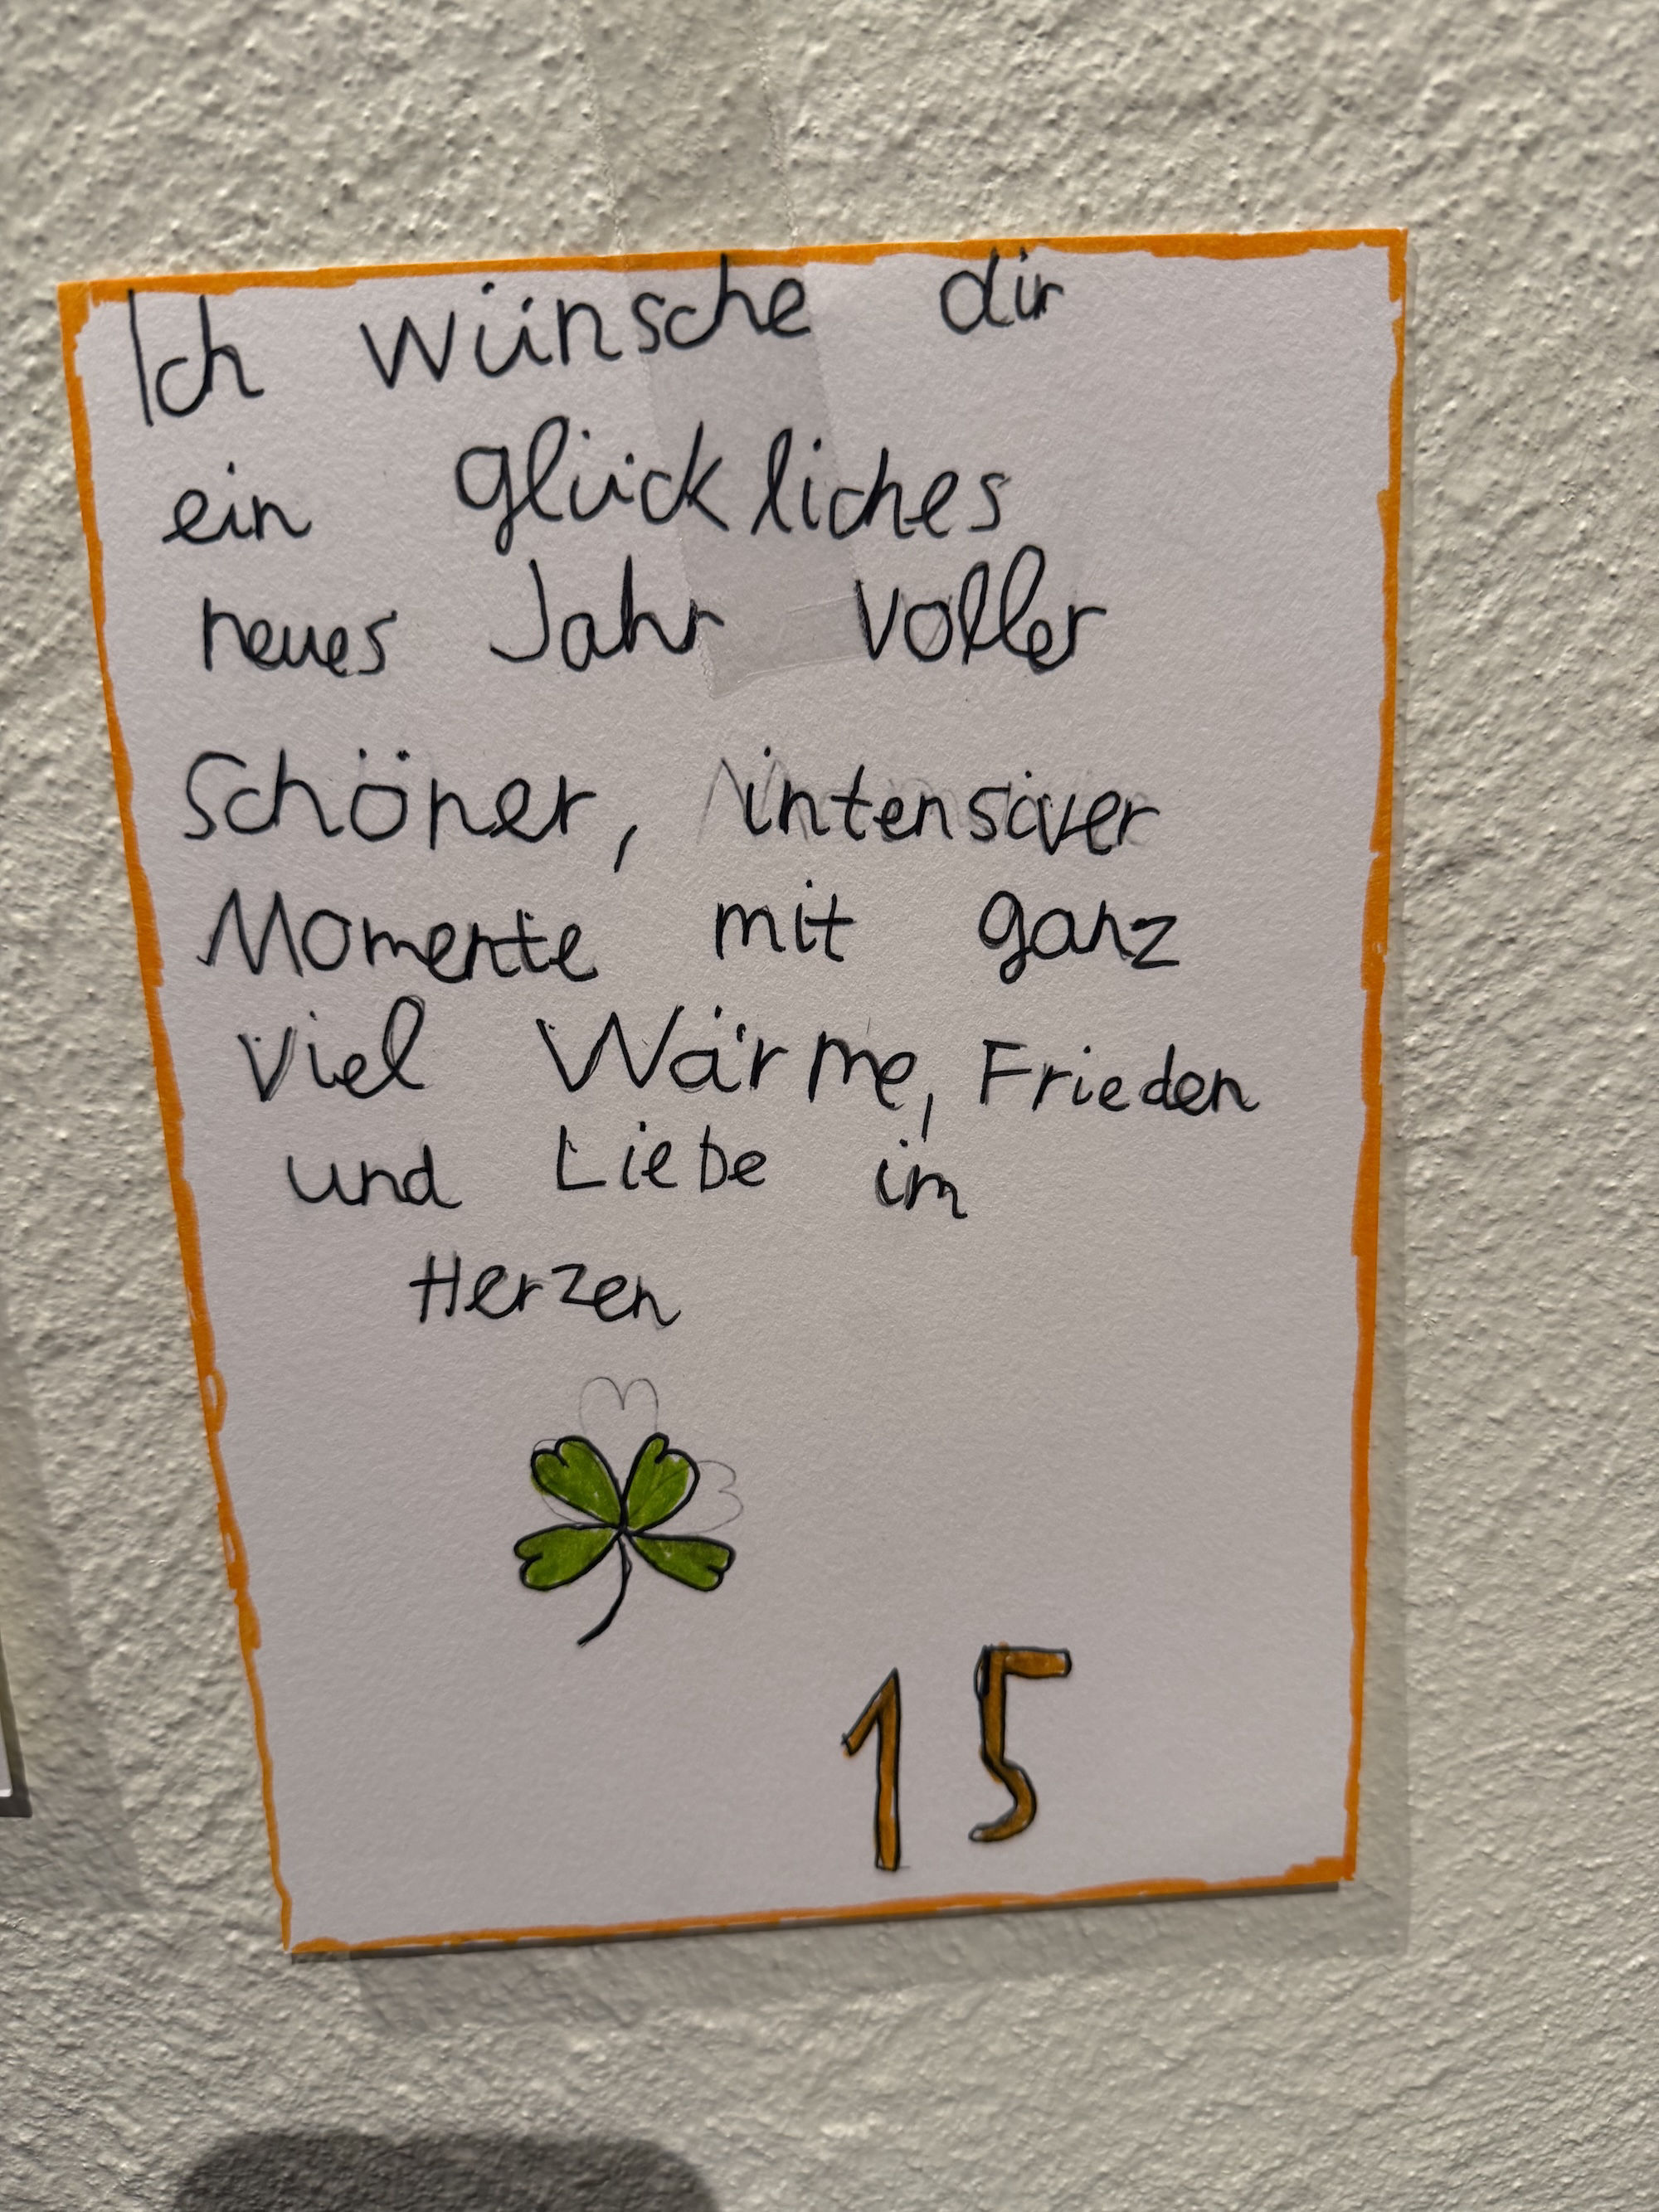 Ich wünsche dir
ein glückliches
neues Jahr voller
Schöner, intensiver
Momente mit ganz
viel Wärme, Frieden
und Liebe im
Herzen
15